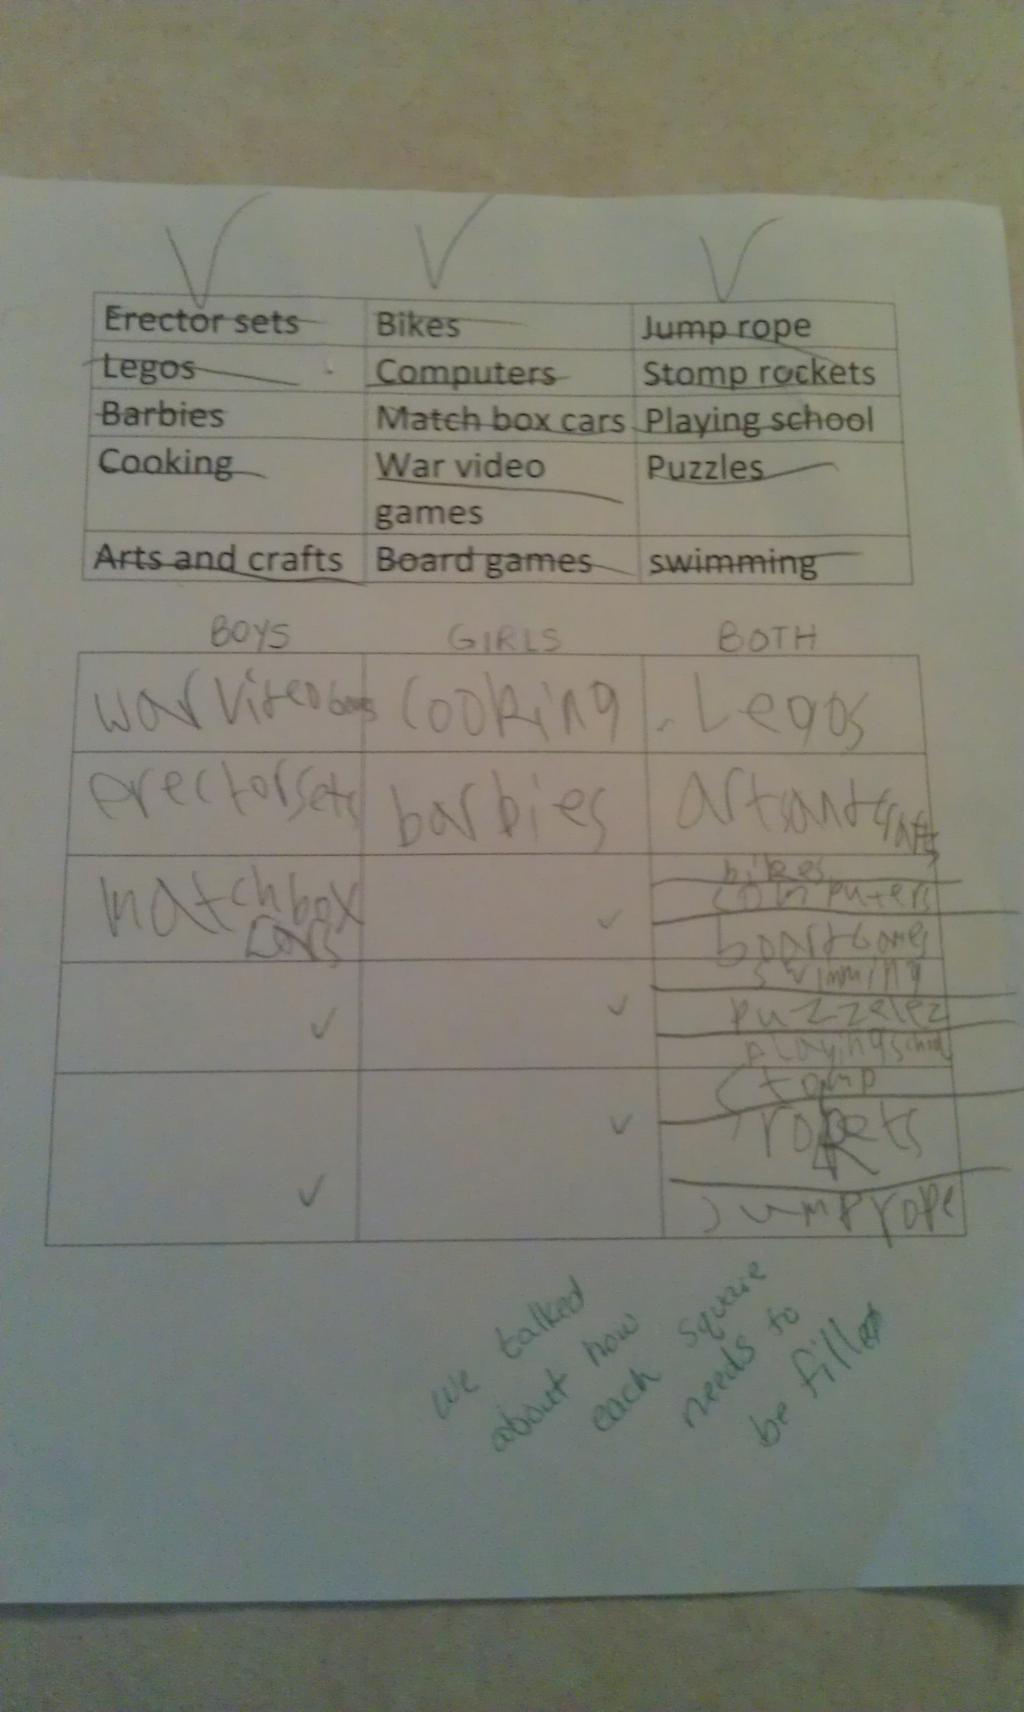 Erector sets Bikes Jump rope
Legos Computers Stomp rockets
Barbies Match box cars Playing school
Cooking War video Puzzles
games
Arts and crafts Board games swimming
BOYS GIRLS BOTH
war viteo cooking Legos
erector sets barbies artsant crafts
matchbox
cars
bikes
computers
boartgames
swimming
puzzelez
playing school
stomp
rokets
jumprope
we talked
about how
each square
needs to
be filled